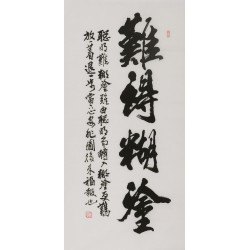 難得糊塗
聰明難糊塗難由聰明而轉入糊塗更難
放一著退一步當心安非圖後來福報也